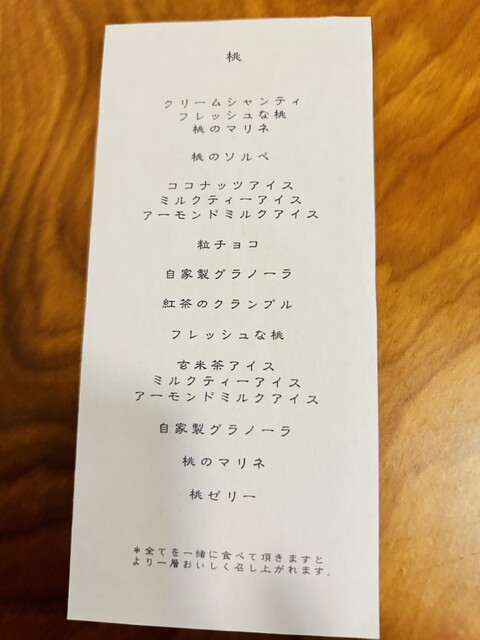 桃
クリームシャンティ
フレッシュな桃
桃のマリネ
桃のソルベ
ココナッツアイス
ミルクティーアイス
アーモンドミルクアイス
粒チョコ
自家製グラノーラ
紅茶のクランブル
フレッシュな桃
玄米茶アイス
ミルクティーアイス
アーモンドミルクアイス
自家製グラノーラ
桃のマリネ
桃ゼリー
＊全てを一緒に食べて頂きますと
より一層おいしく召し上がれます。